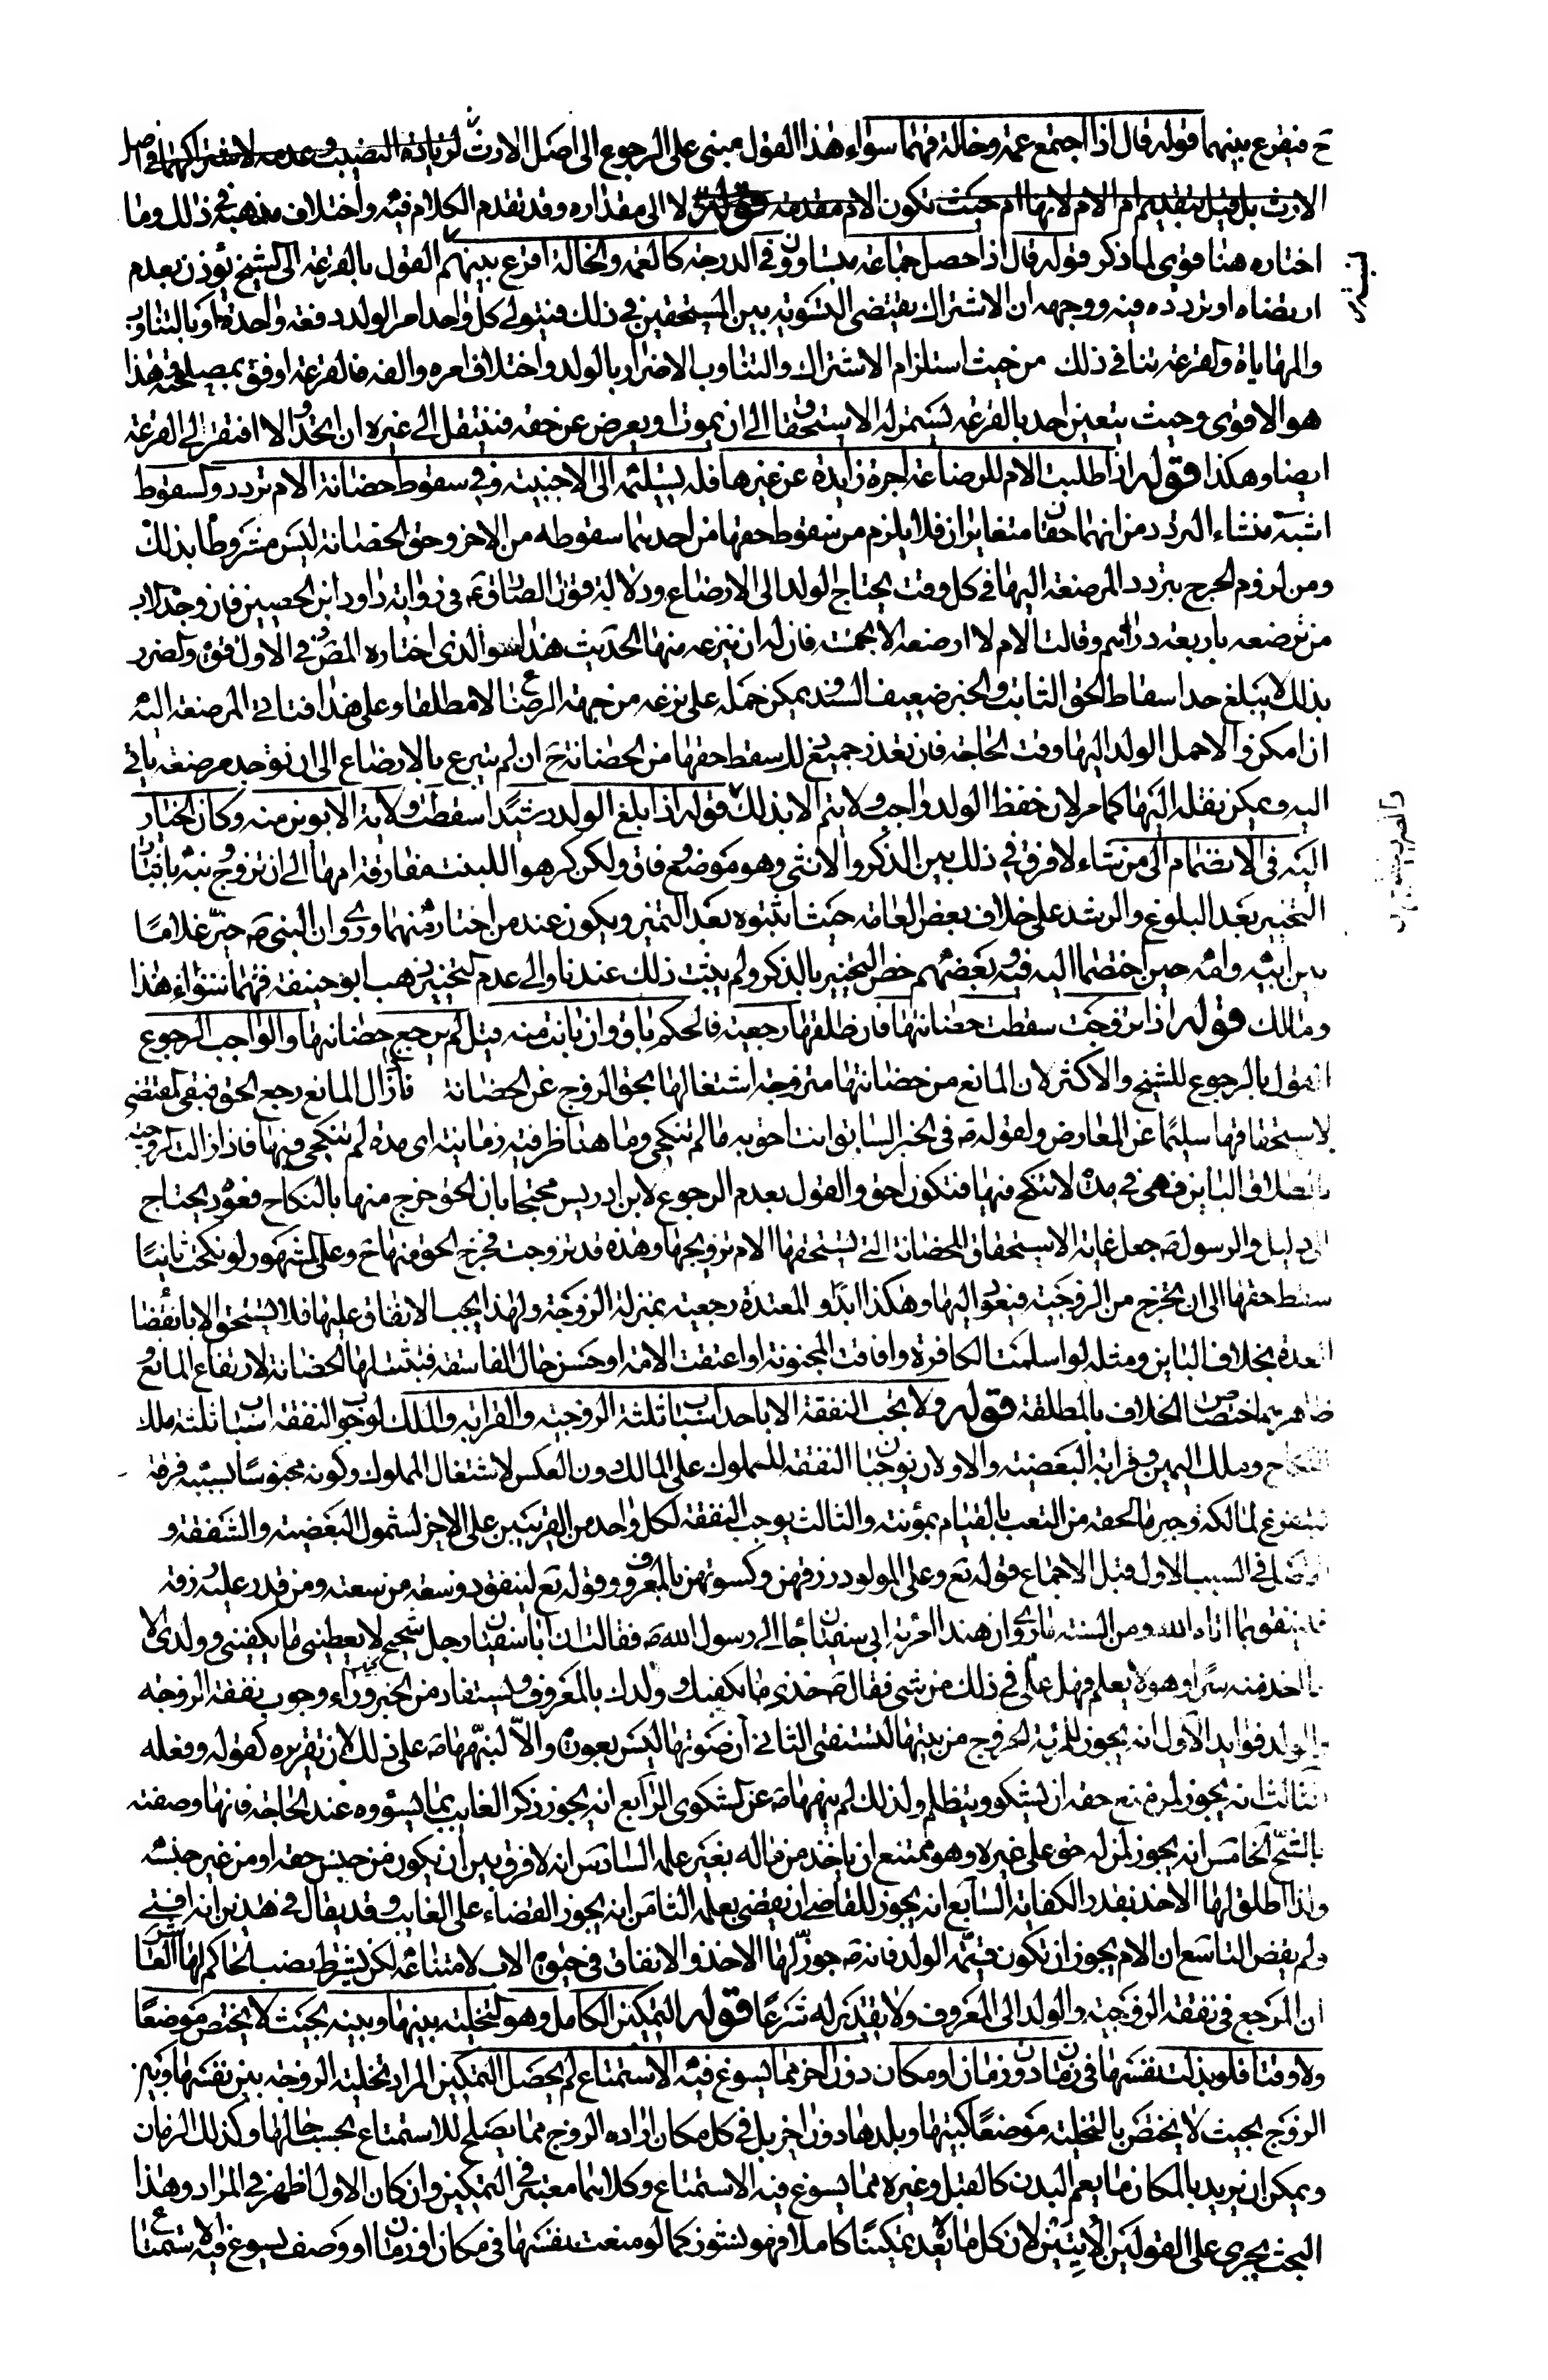 ح فيقرع بينهما قوله قال اذا اجتمع عمة وخالة فهما سواء هذا القول مبنى على الرجوع الى اصل الارث لزيادة النصيب وعدمه لاشتراكهما في اصل
الارث بل قيل بتقديم ام الام لانها ام حيث تكون الام مقدمة قوله لا الى مقداره وقد تقدم الكلام فيه واختلاف مذهبه في ذلك وما
اختاره هنا قوى لما ذكر قوله قال اذا حصل جماعة متساوون في الدرجة كالعمة والخالة اقرع بينهم القول بالقرعة الى الشيخ يؤذن بعدم
ارتضاه او تردده فيه ووجهه ان الاشتراك يقتضى التسوية بين المستحقين في ذلك فيتولى كل واحد امر الولد دفعة واحدة او بالتناوب
والمهاياة والقرعة تنافى ذلك من حيث استلزام الاشتراك والتناوب الاضرار بالولد واختلاف امره والفه فالقرعة اوفق بمصلحته هذا
هو الاقوى وحيث يتعين احد بالقرعة يستمر له الاستحقاق الى ان يموت او يعرض عن حقه فينتقل الى غيره ان اتحد والا افتقر الى القرعة
ايضا وهكذا قوله اذا طلبت الام للرضاعة اجرة زايدة عن غيرها فله تسليمه الى الاجنبية وفى سقوط حضانة الام تردد والسقوط
اشبه منشاء التردد من انهما حقان متغايران فلا يلزم من سقوط حقها من احدهما سقوطه من الاخر وحق الحضانة ليس مشروطا بذلك
ومن لزوم الحرج بتردد المرضعة اليها في كل وقت يحتاج الولد الى الارضاع ودلالة قول الصادق ع في رواية داود ابن الحصين فان وجد الاب
من ترضعه باربعة دراهم وقالت الام لا ارضعه الا بخمسة فان له ان ينزعه منها الحديث هذا هو الذى اختاره المص وفى الاول قوة والضرر
بذلك لا يبلغ حد اسقاط الحق الثابت والخبر ضعيف السند ويمكن حمله على نزعه من جهة الرضاع لا مطلقا وعلى هذا فتاتى المرضعة اليه
ان امكن والا حمل الولد اليها وقت الحاجة فان تعذر جميع ذلك سقط حقها من الحضانة ح ان لم تتبرع بالارضاع الى ان توجد مرضعة ياتى
اليه ويمكن نقله اليها كما مر لان حفظ الولد واجب ولا يتم الا بذلك قوله اذا بلغ الولد رشيدا سقطت ولاية الابوين منه وكان الخيار
اليه في الانضمام الى من شاء لا فرق في ذلك بين الذكر والانثى وهو موضع وفاق ولكن كرهوا للبنت مفارقة امها الى ان تزوج نبه باثبات
التخيير بعد البلوغ والرشد على خلاف بعض العامة حيث اثبتوه بعد التميز ويكون عند من اختار منهما وروى ان النبى ص خير غلاما
بين ابيه وامه حين اختصما اليه فيه وبعضهم خص التخيير بالذكر ولم يثبت ذلك عندنا والى عدم التخيير ذهب ابو حنيفة فهما سواء هذا
ومالك قوله اذا تزوجت سقطت حضانتها فان طلقها رجعية فالحكم باق وان بانت منه قيل لم يرجع حضانتها والواجب الرجوع
القول بالرجوع للشيخ والاكثر لان المانع من حضانتها متزوجة اشتغالها بحق الزوج عن الحضانة فاذا زال المانع رجع الحق فيبقى المقتضى
لاستحقاقها سليما عن المعارض ولقوله ص في الخبر السابق انت احق به ما لم تنكحى وما هنا ظرفية زمانية اى مدة لم تنكحى فيها فاذا زالت الزوجية
بالطلاق الباين فهى في مدة لا تنكح فيها فتكون احق والقول بعدم الرجوع لابن ادريس محتجا بان الحق خرج منها بالنكاح فعوده يحتاج
الى دليل والرسول ص جعل غاية الاستحقاق للحضانة التى تستحقها الام تزويجها وهذه قد تزوجت فخرج الحق منها ح وعلى المشهور لو نكحت ثانيا
سقط حقها الى ان تخرج من الزوجية فيعود اليها وهكذا ابدا والمعتدة رجعية بمنزلة الزوجة ولهذا يجب الانفاق عليها فلا تستحق الا بانقضاء
العدة بخلاف الباين ومثله لو اسلمت الكافرة وافاقت المجنونة او اعتقت الامة او حسن حال الفاسقة فيثبت لها الحضانة لارتفاع المانع و
ظاهرهم اختصاص الخلاف بالمطلقة قوله ولا تجب النفقة الا باحد اسباب ثلثة الزوجية والقرابة والملك لوجوب النفقة اسباب ثلثة ملك
النكاح وملك اليمين وقرابة البعضية والاولان يوجبان النفقة للمملوك على المالك دون العكس لاشتغال المملوك وكونه محبوسا بسببه فرضه
ليتفرغ لمالكه وجبر ما لحقه من التعب بالقيام بمؤنته والثالث يوجب النفقة لكل واحد من القريبين على الاخر لشمول البعضية والشفقة و
الاصل في السبب الاول قبل الاجماع قوله تع وعلى المولود له رزقهن وكسوتهن بالمعروف وقوله تع لينفق ذو سعة من سعته ومن قدر عليه رزقه
فلينفق مما اتاه الله ومن السنة ما روى ان هندا امرأة ابى سفيان جاءت الى رسول الله ص فقالت ان ابا سفيان رجل شحيح لا يعطينى ما يكفينى وولدى الا
ما اخذ منه سرا وهو لا يعلم فهل على في ذلك من شئ فقال ص خذى ما يكفيك وولدك بالمعروف ويستفاد من الخبر وراء وجوب نفقة الزوجة
والولد فوايد الاول انه يجوز للمرئة الخروج من بيتها لتستفتى الثانى ان صوتها ليس بعورة والا لنبهها ص على ذلك لان تقريره كقوله وفعله
الثالث انه يجوز لمن منع حقه ان يشكو ويتظلم ولذلك لم ينهها ص عن الشكوى الرابع انه يجوز ذكر الغايب بما يسؤوه عند الحاجة فانها وصفته
بالشح الخامس انه يجوز لمن له حق على غيره وهو ممتنع ان ياخذ من ماله بغير علمه السادس انه لا فرق بين ان يكون من جنس حقه او من غير جنسه
ولذا اطلق لها الاخذ بقدر الكفاية السابع انه يجوز للقاضى ان يقضى بعلمه الثامن انه يجوز القضاء على الغايب وقد يقال في هذين انه افتى
ولم يقض التاسع ان الام يجوز ان تكون قيمة الولد فانه ص جوز لها الاخذ والانفاق في حيوة الاب لامتناعه لكن بشرط نصب الحاكم لها العاشر
ان المرجع في نفقة الزوجية والولد الى المعروف ولا يقدر له شرعا قوله التمكين الكامل وهو التخلية بينها وبينه بحيث لا يختص موضعا
ولا وقتا فلو بذلت نفسها في زمان دون زمان او مكان دون اخر مما يسوغ فيه الاستمتاع لم يحصل التمكين المراد بتخلية الزوجة بين نفسها وبين
الزوج بحيث لا يختص بالتخلية موضعا كبيتها وبلدها دون اخر بل في كل مكان اراده الزوج مما يصلح للاستمتاع بحسب حالها وكذلك الزمان
ويمكن ان يريد بالمكان ما يعم البدن كالقبل وغيره مما يسوغ فيه الاستمتاع وكلاهما معتبر في التمكين وان كان الاول اظهر في المراد وهذا
البحث يجرى على القولين الاتيين لان كل ما لا يعد تمكينا كاملا فهو نشوز كما لو منعت نفسها في مكان او زمان او وصف يسوغ فيه الاستمتاع